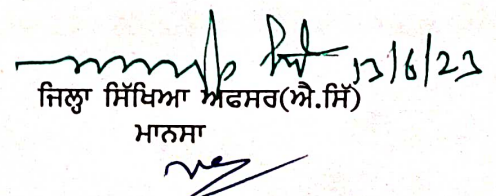 13/6/23
ਜਿਲ੍ਹਾ ਸਿੱਖਿਆ ਅਫਸਰ(ਐ.ਸਿੱ)
ਮਾਨਸਾ